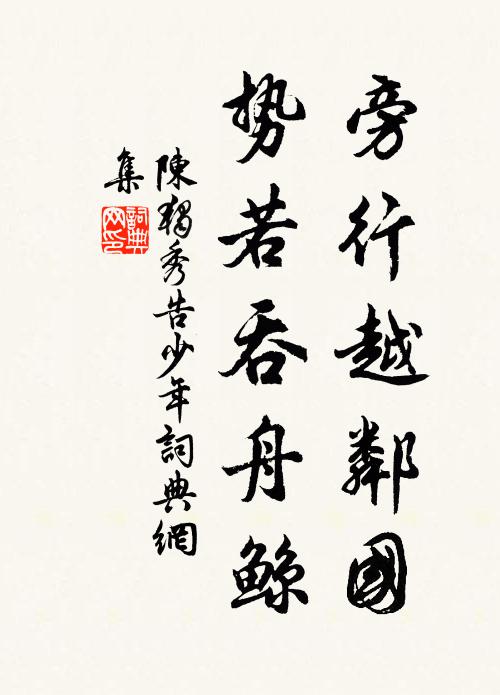 旁行越鄰國
勢若吞舟鯨
陳獨秀告少年詞典網
集
詞典
网印